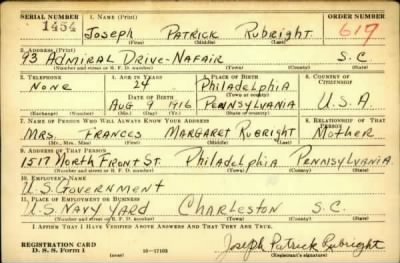 SERIAL NUMBER 1. NAME (Print) ORDER NUMBER
1454 Joseph Patrick Rubright 617
(First) (Middle) (Last)
2. ADDRESS (Print)
93 Admiral Drive-Nafair S.C
(Number and street or R. F. D. number) (Town) (County) (State)
3. TELEPHONE 4. AGE IN YEARS 5. PLACE OF BIRTH 6. COUNTRY OF CITIZENSHIP
None 24 Philadelphia
DATE OF BIRTH (Town or county)
Aug 9 1916 Pennsylvania U.S.A.
(Exchange) (Number) (Mo.) (Day) (Yr.) (State or country)
7. NAME OF PERSON WHO WILL ALWAYS KNOW YOUR ADDRESS 8. RELATIONSHIP OF THAT PERSON
Mrs. Frances Margaret Rubright Mother
(Mr., Mrs., Miss) (First) (Middle) (Last)
9. ADDRESS OF THAT PERSON
1517 North Front St. Philadelphia Pennisylvania.
(Number and street or R. F. D. number) (Town) (County) (State)
10. EMPLOYER'S NAME
U.S. Government
11. PLACE OF EMPLOYMENT OR BUSINESS
U.S. Navy Yard Charleston S.C.
(Number and street or R. F. D. number) (Town) (County) (State)
I AFFIRM THAT I HAVE VERIFIED ABOVE ANSWERS AND THAT THEY ARE TRUE.
REGISTRATION CARD
D. S. S. Form 1 16-17105 Joseph Patrick Rubright
(Registrant's signature)